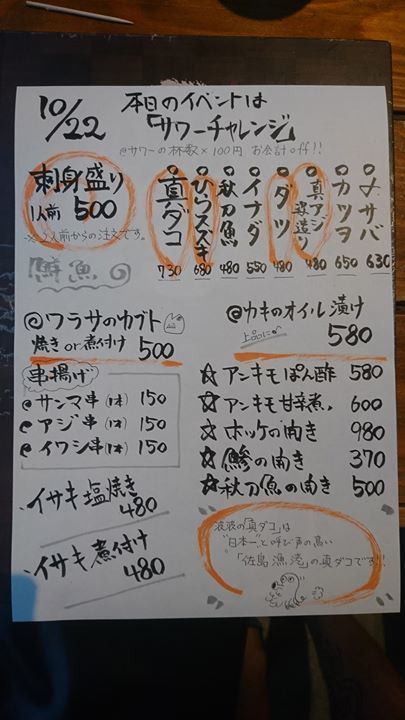 10/22
本日のイベントは
「サワーチャレンジ」
@サワーの杯数×100円 お会計off!!
刺身盛り
1人前 500
※2人前からの注文です。
鮮魚
〆サバ 630
カツヲ 650
真アジ姿造り 480
ダツ 480
イナダ 550
秋刀魚 480
ひらスズキ 680
真ダコ 730
@ワラサのカブト
焼き or 煮付け 500
@カキのオイル漬け
上品に 580
串揚げ
@サンマ串(1本) 150
@アジ串(1本) 150
@イワシ串(1本) 150
☆アンキモぽん酢 580
☆アンキモ甘辛煮 600
☆ホッケの開き 980
☆鯵の開き 370
☆秋刀魚の開き 500
・イサキ塩焼き
480
・イサキ煮付け
480
波波の「真ダコ」は
"日本一"と呼び声の高い
「佐島漁港」の真ダコです!!